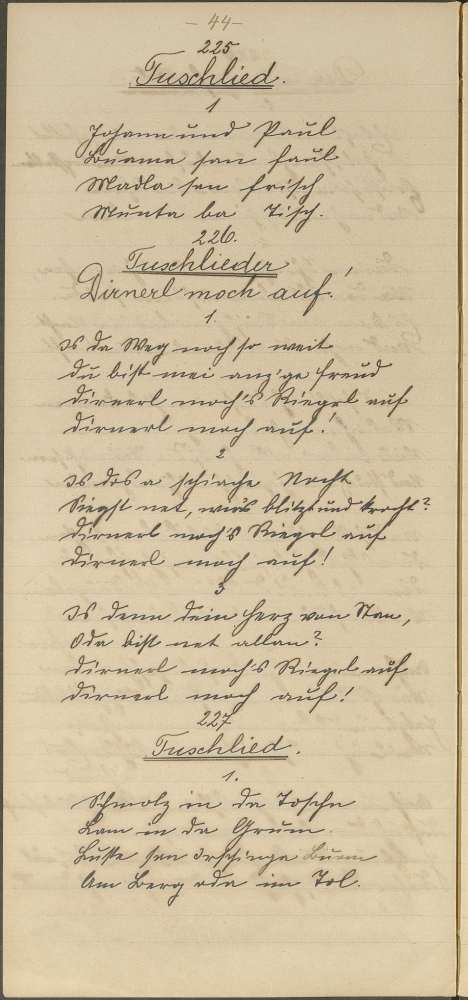 - 44 -
225
Tuschlied.
1
Johann und Paul
Buama san faul
Madla san frisch
Munta ba Tisch.
226.
Tuschlieder
Dirnerl moch auf!
1.
Is da Weg noch so weit
Du bist mei anz'ge Freud
Dirnerl moch's Riegel auf
Dirnerl moch auf!
2
Is dos a schiache Nocht
Siegst net, wia's blitzt und krocht?
Dirnerl moch's Riegel auf
Dirnerl moch auf!
3
Is denn dein Herz von Stan,
Oda bist net allan?
Dirnerl moch's Riegel auf
Dirnerl moch auf!
227
Tuschlied.
1.
Schmolz in da Toschn
Lam in da Gruam
san
Am Berg oda im Tol.